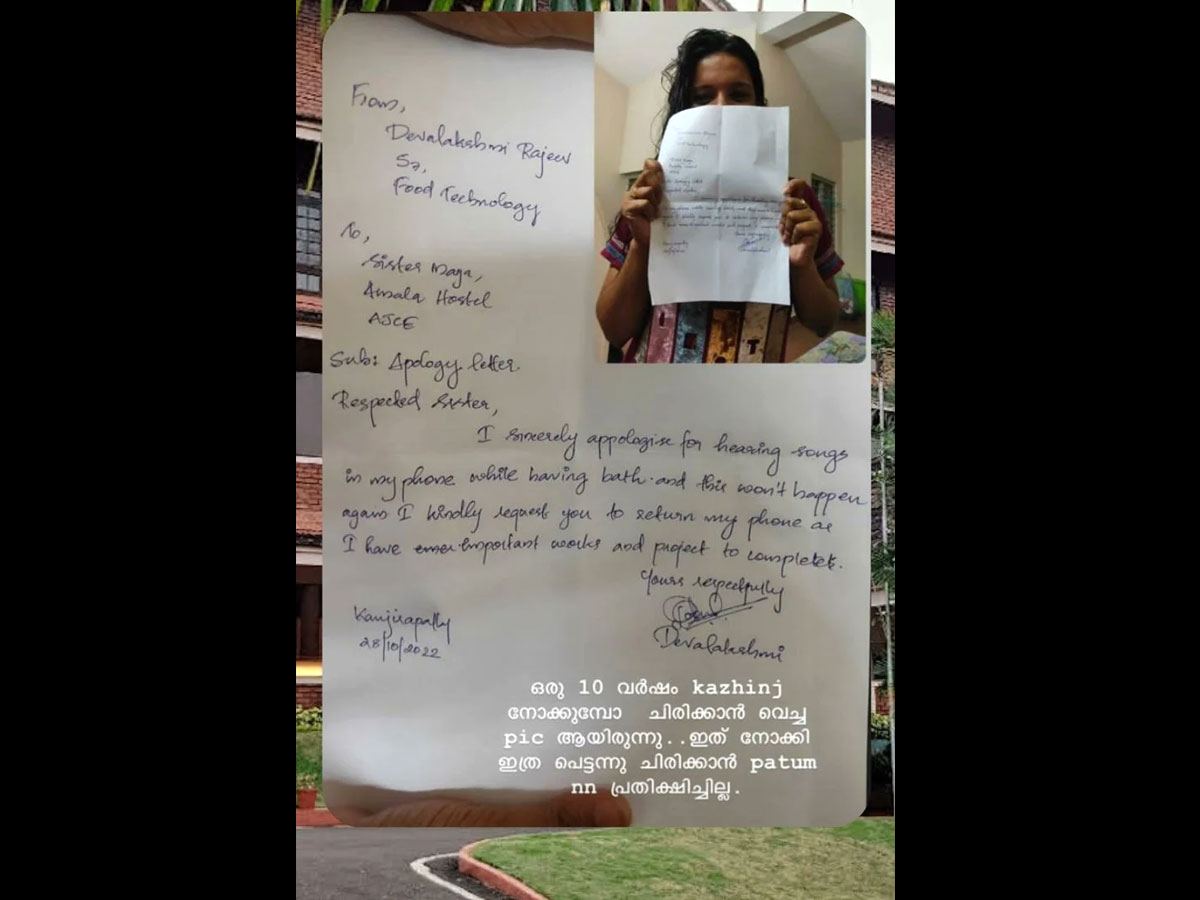 From,
Devalakshmi Rajeev
S7,
Food Technology
To,
Sister Maya,
Amala Hostel
AJCE
Sub: Apology letter.
Respected Sister,
I sincerely appologise for hearing songs
in my phone while having bath. and this won't happen
again I kindly request you to return my phone as
I have important works and project to complete.
Yours respectfully
Devalakshmi
Kanjirapally
28/10/2022
ഒരു 10 വർഷം kazhinj
നോക്കുമ്പോ ചിരിക്കാൻ വെച്ച
pic ആയിരുന്നു..ഇത് നോക്കി
ഇത്ര പെട്ടന്നു ചിരിക്കാൻ patum
nn പ്രതിക്ഷിച്ചില്ല.